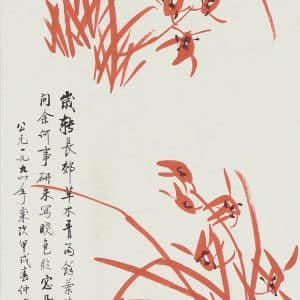 歲轉長郊草木青雨餘葉
問余何事研朱寫晚色
公元一九九四年歲次甲戌春仲